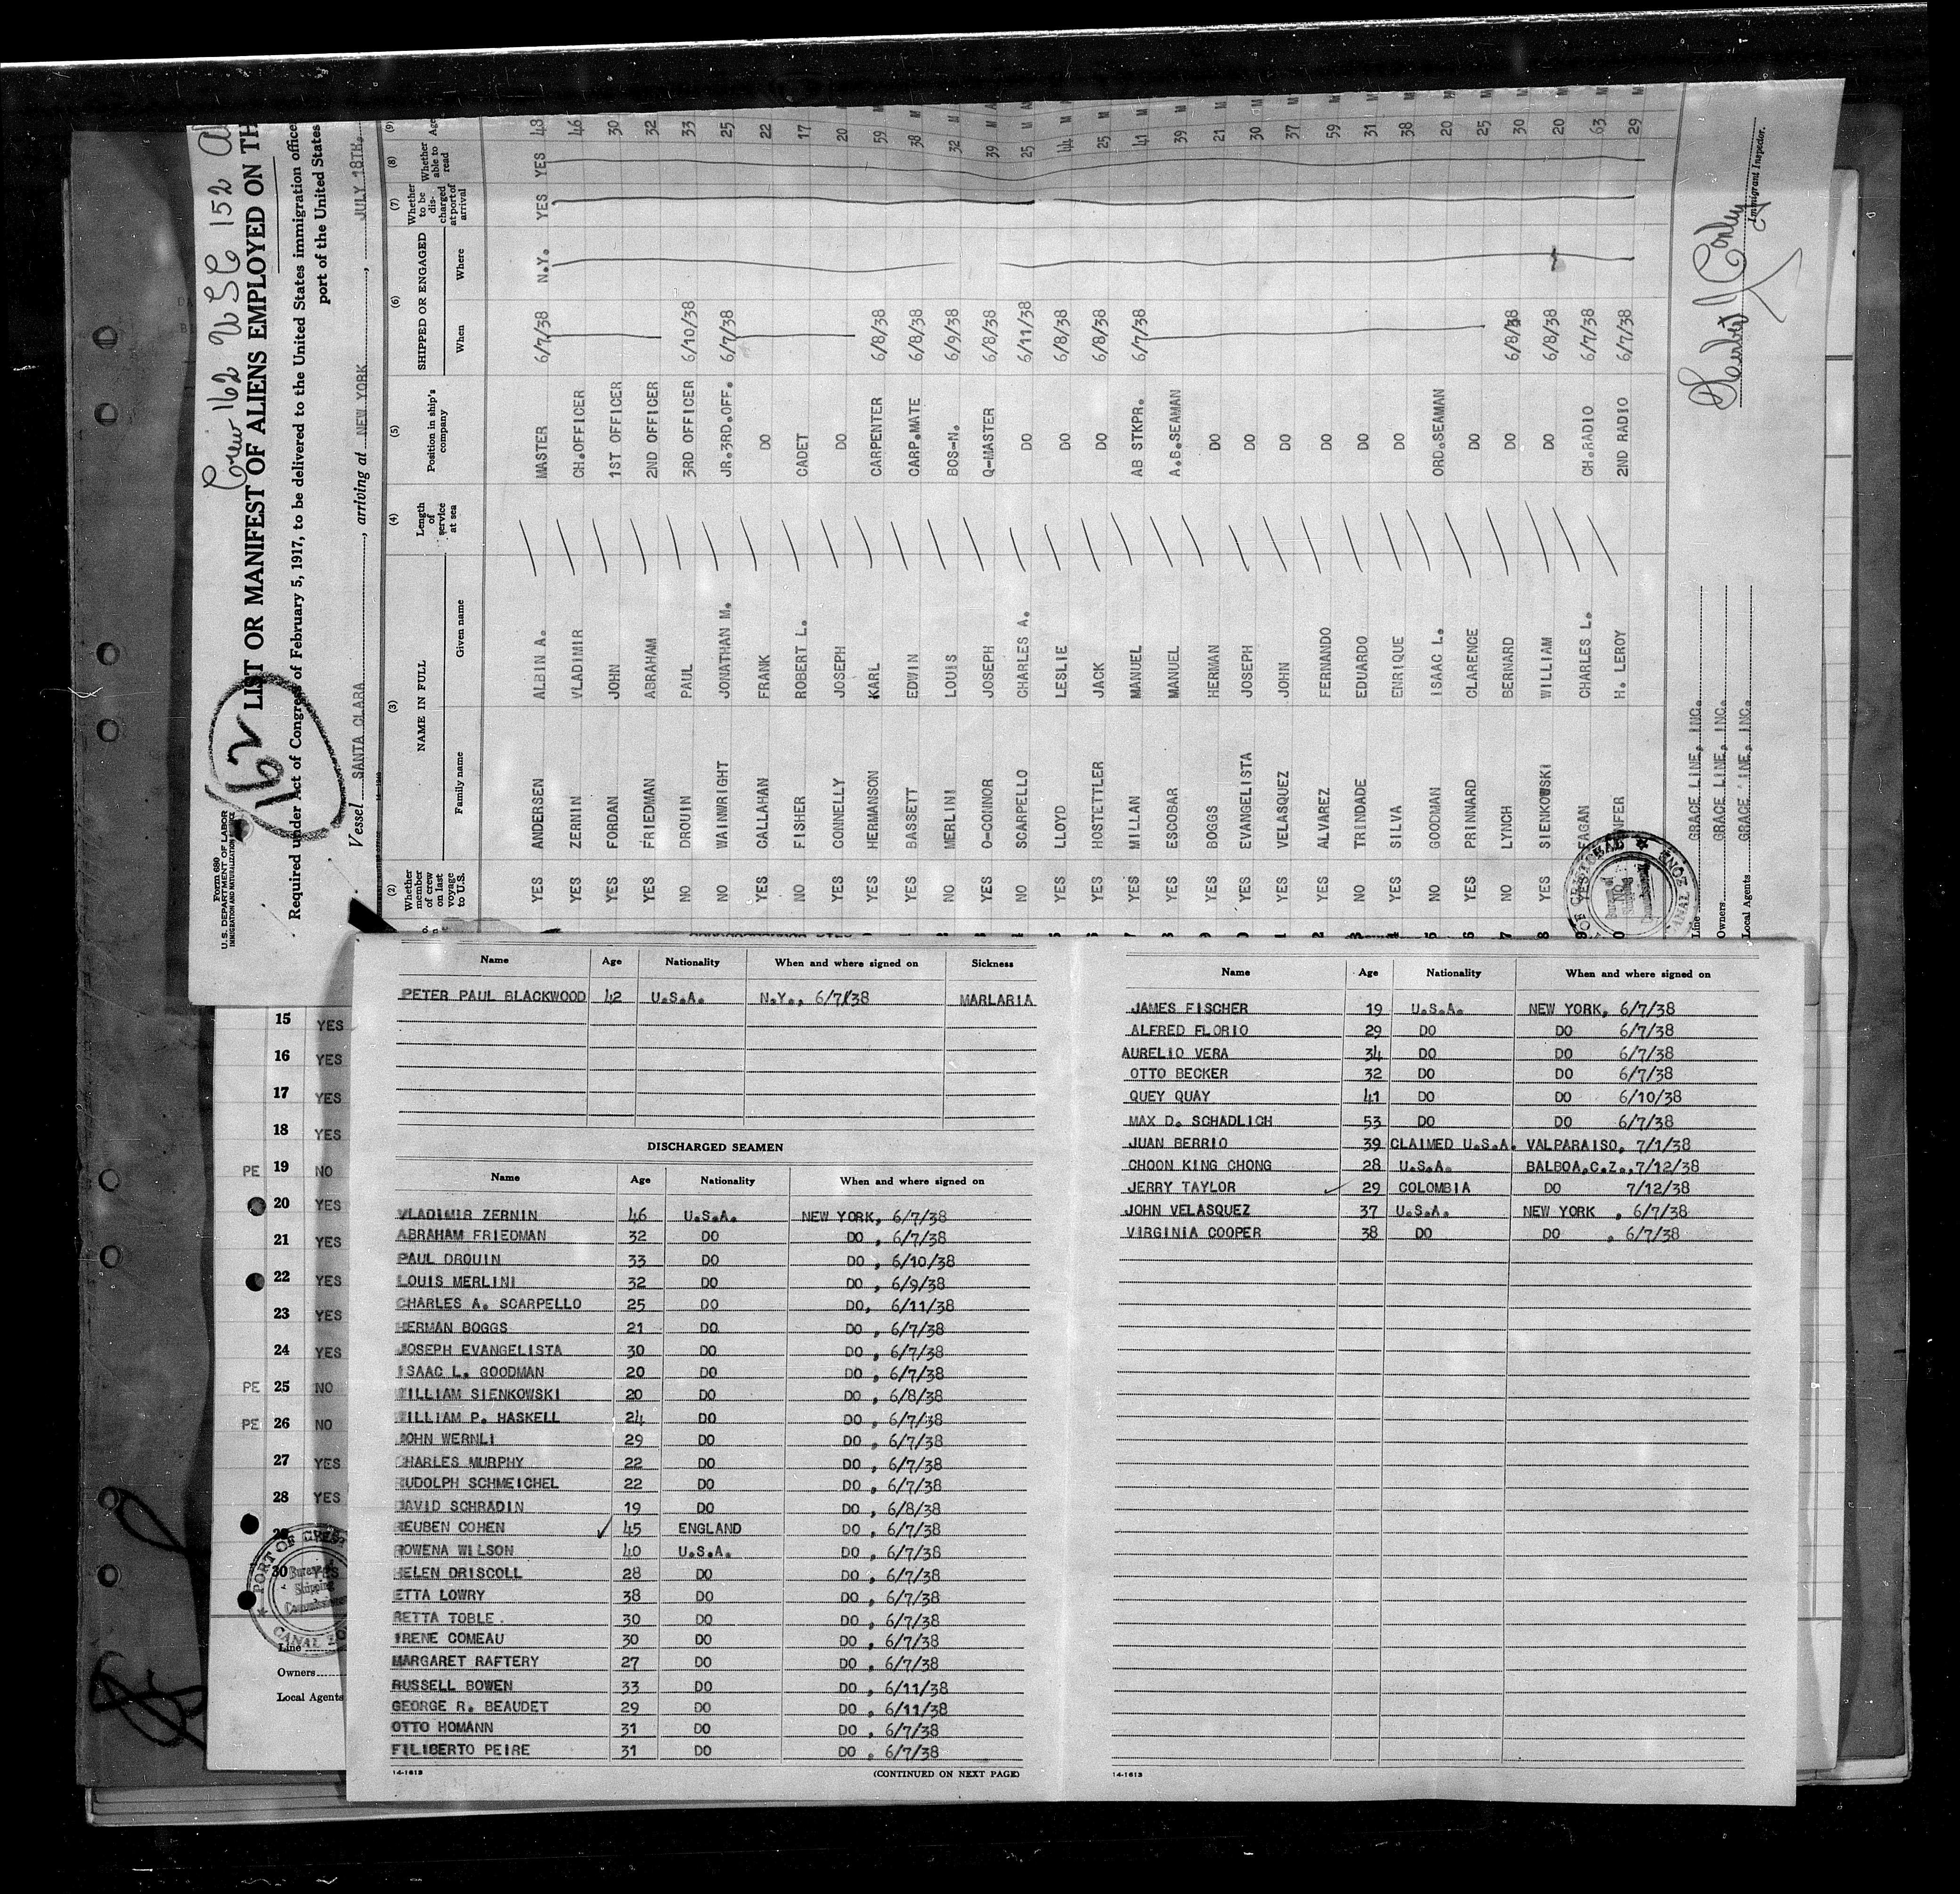 Crew 162 USC 152
162
Form 680
U. S. DEPARTMENT OF LABOR
IMMIGRATION AND NATURALIZATION SERVICE
LIST OR MANIFEST OF ALIENS EMPLOYED ON TH
Required under Act of Congress of February 5, 1917, to be delivered to the United States immigration office
port of the United States
Vessel SANTA CLARA, arriving at NEW YORK, JULY 18TH,
(2) (3) (4) (5) (6) (7) (8) (9)
Whether member of crew on last voyage to U.S. NAME IN FULL Family name Given name Length of service at sea Position in ship's company SHIPPED OR ENGAGED When Where Whether to be discharged at port of arrival Whether able to read Ag
YES ANDERSEN ALBIN A. MASTER 6/7/38 N.Y. YES YES 48
YES ZERNIN VLADIMIR CH.OFFICER 46
YES FORDAN JOHN 1ST OFFICER 30
YES FRIEDMAN ABRAHAM 2ND OFFICER 32
NO DROUIN PAUL 3RD OFFICER 6/10/38 33
NO WAINWRIGHT JONATHAN M. JR.3RD.OFF. 6/7/38 25
YES CALLAHAN FRANK DO 22
NO FISHER ROBERT L. CADET 17
YES CONNELLY JOSEPH DO 20 M
YES HERMANSON KARL CARPENTER 6/8/38 59 M
YES BASSETT EDWIN CARP.MATE 6/8/38 38 M
NO MERLINI LOUIS BOS-N. 6/9/38 32 M
YES O-CONNOR JOSEPH Q-MASTER 6/8/38 39 M
NO SCARPELLO CHARLES A. DO 6/11/38 25 M
YES LLOYD LESLIE DO 6/8/38 44 M
YES HOSTETTLER JACK DO 6/8/38 25 M
YES MILLAN MANUEL AB STKPR. 6/7/38 41 M
YES ESCOBAR MANUEL A.B.SEAMAN 39 M
YES BOGGS HERMAN DO 21 M
YES EVANGELISTA JOSEPH DO 30 M
YES VELASQUEZ JOHN DO 37 M
YES ALVAREZ FERNANDO DO 59 M
NO TRINDADE EDUARDO DO 31 M
YES SILVA ENRIQUE DO 38 M
NO GOODMAN ISAAC L. ORD.SEAMAN 20 M
YES PRINNARD CLARENCE DO 25 M
NO LYNCH BERNARD DO 6/8/38 30 M
YES SIENKOWSKI WILLIAM DO 6/8/38 20 M
CHARLES L. CH.RADIO 6/7/38 63 M
H. LEROY 2ND RADIO 6/7/38 29 M
Line GRACE LINE, INC.
Owners GRACE LINE, INC.
Local Agents GRACE LINE, INC.
Herbert J Conley
Immigrant Inspector.
Name Age Nationality When and where signed on Sickness
PETER PAUL BLACKWOOD 42 U.S.A. N.Y., 6/7/38 MARLARIA
DISCHARGED SEAMEN
Name Age Nationality When and where signed on
VLADIMIR ZERNIN 46 U.S.A. NEW YORK, 6/7/38
ABRAHAM FRIEDMAN 32 DO DO , 6/7/38
PAUL DROUIN 33 DO DO , 6/10/38
LOUIS MERLINI 32 DO DO , 6/9/38
CHARLES A. SCARPELLO 25 DO DO, 6/11/38
HERMAN BOGGS 21 DO DO , 6/7/38
JOSEPH EVANGELISTA 30 DO DO , 6/7/38
ISAAC L. GOODMAN 20 DO DO , 6/7/38
WILLIAM SIENKOWSKI 20 DO DO , 6/8/38
WILLIAM P. HASKELL 24 DO DO , 6/7/38
JOHN WERNLI 29 DO DO , 6/7/38
CHARLES MURPHY 22 DO DO , 6/7/38
RUDOLPH SCHMEICHEL 22 DO DO , 6/7/38
DAVID SCHRADIN 19 DO DO , 6/8/38
REUBEN COHEN 45 ENGLAND DO , 6/7/38
ROWENA WILSON 40 U.S.A. DO , 6/7/38
HELEN DRISCOLL 28 DO DO , 6/7/38
ETTA LOWRY 38 DO DO , 6/7/38
RETTA TOBLE. 30 DO DO , 6/7/38
IRENE COMEAU 30 DO DO , 6/7/38
MARGARET RAFTERY 27 DO DO , 6/7/38
RUSSELL BOWEN 33 DO DO , 6/11/38
GEORGE R. BEAUDET 29 DO DO , 6/11/38
OTTO HOMANN 31 DO DO , 6/7/38
FILIBERTO PEIRE 31 DO DO , 6/7/38
14-1613 (CONTINUED ON NEXT PAGE)
Name Age Nationality When and where signed on
JAMES FISCHER 19 U.S.A. NEW YORK, 6/7/38
ALFRED FLORIO 29 DO DO 6/7/38
AURELIO VERA 34 DO DO 6/7/38
OTTO BECKER 32 DO DO 6/7/38
QUEY QUAY 41 DO DO 6/10/38
MAX D. SCHADLICH 53 DO DO 6/7/38
JUAN BERRIO 39 CLAIMED U.S.A. VALPARAISO, 7/1/38
CHOON KING CHONG 28 U.S.A. BALBOA,C.Z.,7/12/38
JERRY TAYLOR 29 COLOMBIA DO 7/12/38
JOHN VELASQUEZ 37 U.S.A. NEW YORK , 6/7/38
VIRGINIA COOPER 38 DO DO , 6/7/38
14-1613
15 YES
16 YES
17 YES
18 YES
PE 19 NO
20 YES
21 YES
22 YES
23 YES
24 YES
PE 25 NO
PE 26 NO
27 YES
28 YES
29
30 YES
PORT OF CRIS
Bureau of
Shipping
Commissioner
CANAL ZO
Line
Owners
Local Agents